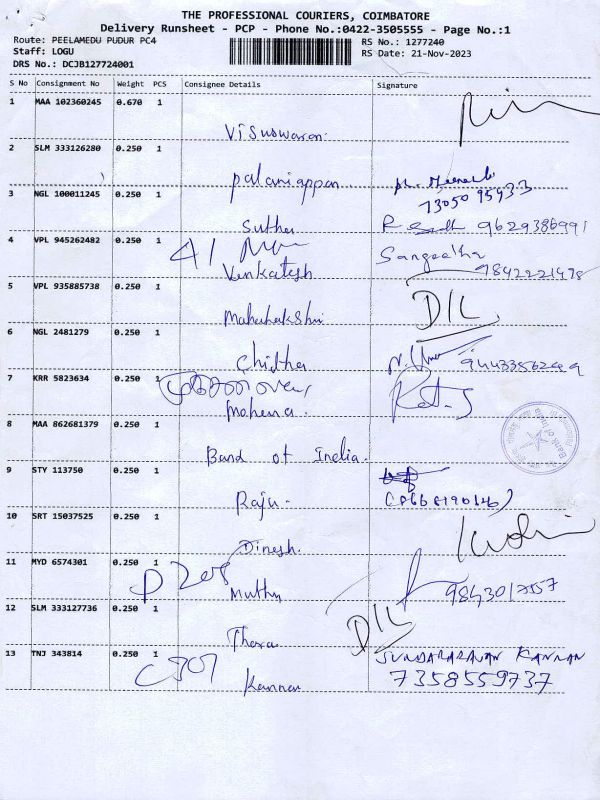 THE PROFESSIONAL COURIERS, COIMBATORE
Delivery Runsheet - PCP - Phone No.:0422-3505555 - Page No.:1
Route: PEELAMEDU PUDUR PC4 RS No.: 1277240
Staff: LOGU RS Date: 21-Nov-2023
DRS No.: DCJB127724001
S No Consignment No Weight PCS Consignee Details Signature
1 MAA 102360245 0.670 1
Visuswaran
2 SLM 333126280 0.250 1
Palaniappan
73050 95933
3 NGL 100011245 0.250 1
Sutha 9629386991
4 VPL 945262482 0.250 1 41 Sangeetha
Venkatesh 9842221478
5 VPL 935885738 0.250 1
Mahalakshmi D/L
6 NGL 2481279 0.250 1
Chitha
7 KRR 5823634 0.250 1
Mohena
8 MAA 862681379 0.250 1
Band of India Bank of India
9 STY 113750 0.250 1
Raju
10 SRT 15037525 0.250 1
Dinesh
11 MYD 6574301 0.250 1
Muthu 9843017557
12 SLM 333127736 0.250 1
Thara D/L
13 TNJ 343814 0.250 1 C307 KANNAN
Kannan 7358559737